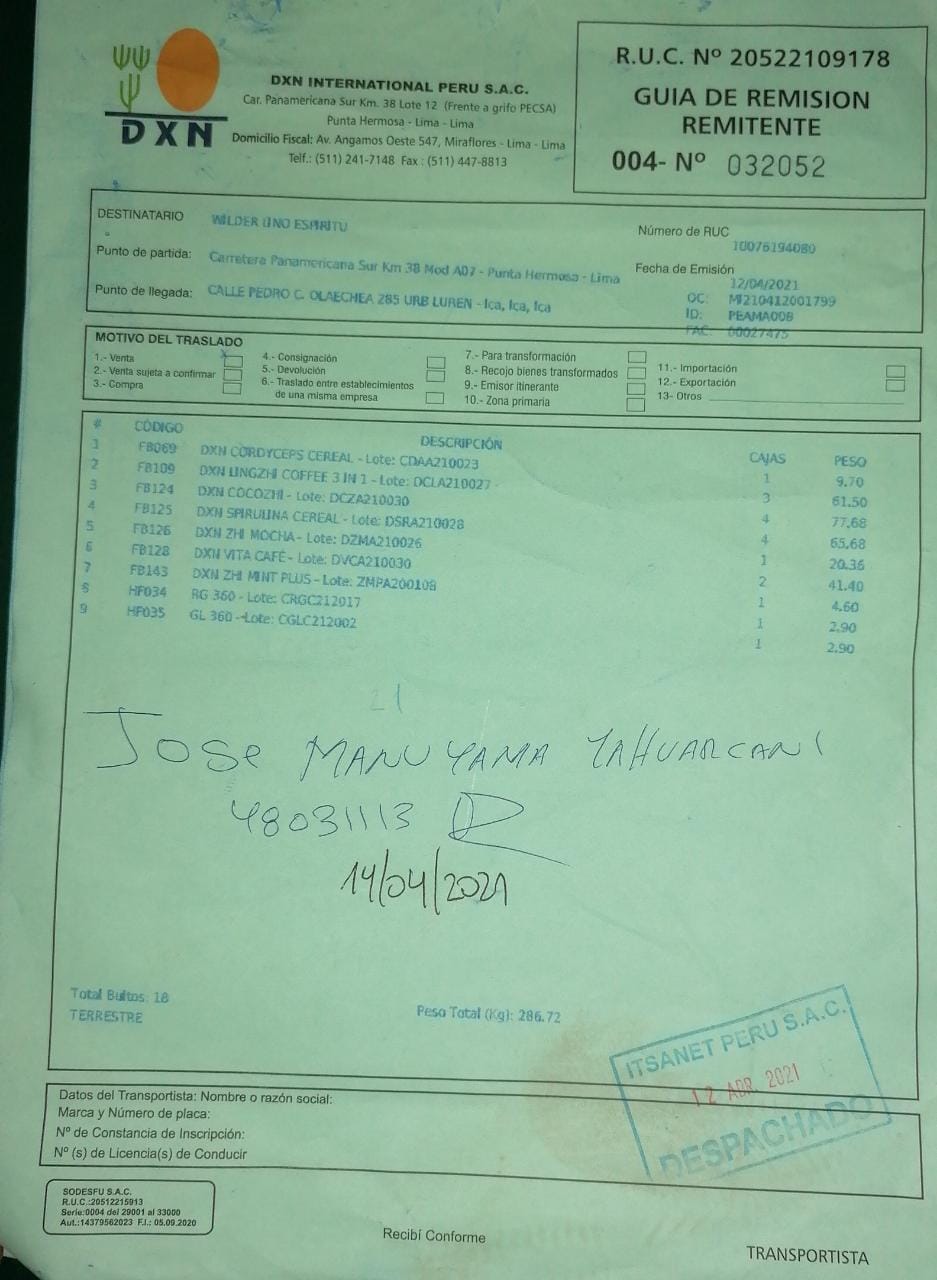 DXN
DXN INTERNATIONAL PERU S.A.C.
Car. Panamericana Sur Km. 38 Lote 12 (Frente a grifo PECSA)
Punta Hermosa - Lima - Lima
Domicilio Fiscal: Av. Angamos Oeste 547, Miraflores - Lima - Lima
Telf.: (511) 241-7148 Fax : (511) 447-8813
R.U.C. Nº 20522109178
GUIA DE REMISION
REMITENTE
004- Nº 032052
DESTINATARIO WILDER LINO ESPIRITU
Número de RUC
10076194080
Punto de partida: Carretera Panamericana Sur Km 38 Mod A07 - Punta Hermosa - Lima
Fecha de Emisión
12/04/2021
Punto de llegada: CALLE PEDRO C. OLAECHEA 285 URB LUREN - Ica, Ica, Ica
OC: MI210412001799
ID: PEAMA008
FAC: 00027475
MOTIVO DEL TRASLADO
1.- Venta X
2.- Venta sujeta a confirmar
3.- Compra
4.- Consignación
5.- Devolución
6.- Traslado entre establecimientos
de una misma empresa
7.- Para transformación
8.- Recojo bienes transformados
9.- Emisor itinerante
10.- Zona primaria
11.- Importación
12.- Exportación
13- Otros
# CÓDIGO DESCRIPCIÓN CAJAS PESO
1 FB069 DXN CORDYCEPS CEREAL - Lote: CDAA210023 1 9.70
2 FB109 DXN LINGZHI COFFEE 3 IN 1 - Lote: DCLA210027 3 61.50
3 FB124 DXN COCOZHI - Lote: DCZA210030 4 77.68
4 FB125 DXN SPIRULINA CEREAL - Lote: DSRA210028 4 65.68
5 FB126 DXN ZHI MOCHA - Lote: DZMA210026 1 20.36
6 FB128 DXN VITA CAFÉ - Lote: DVCA210030 2 41.40
7 FB143 DXN ZHI MINT PLUS - Lote: ZMPA200108 1 4.60
8 HF034 RG 360 - Lote: CRGC212017 1 2.90
9 HF035 GL 360 - Lote: CGLC212002 1 2.90
21
JOSE MANUYAMA YAHUARCANI
48031113
14/04/2021
Total Bultos: 18
TERRESTRE
Peso Total (Kg): 286.72
ITSANET PERU S.A.C.
12 ABR. 2021
DESPACHADO
Datos del Transportista: Nombre o razón social:
Marca y Número de placa:
Nº de Constancia de Inscripción:
Nº (s) de Licencia(s) de Conducir
SODESFU S.A.C.
R.U.C.:20512215913
Serie:0004 del 29001 al 33000
Aut.:14379562023 F.I.: 05.09.2020
Recibí Conforme
TRANSPORTISTA